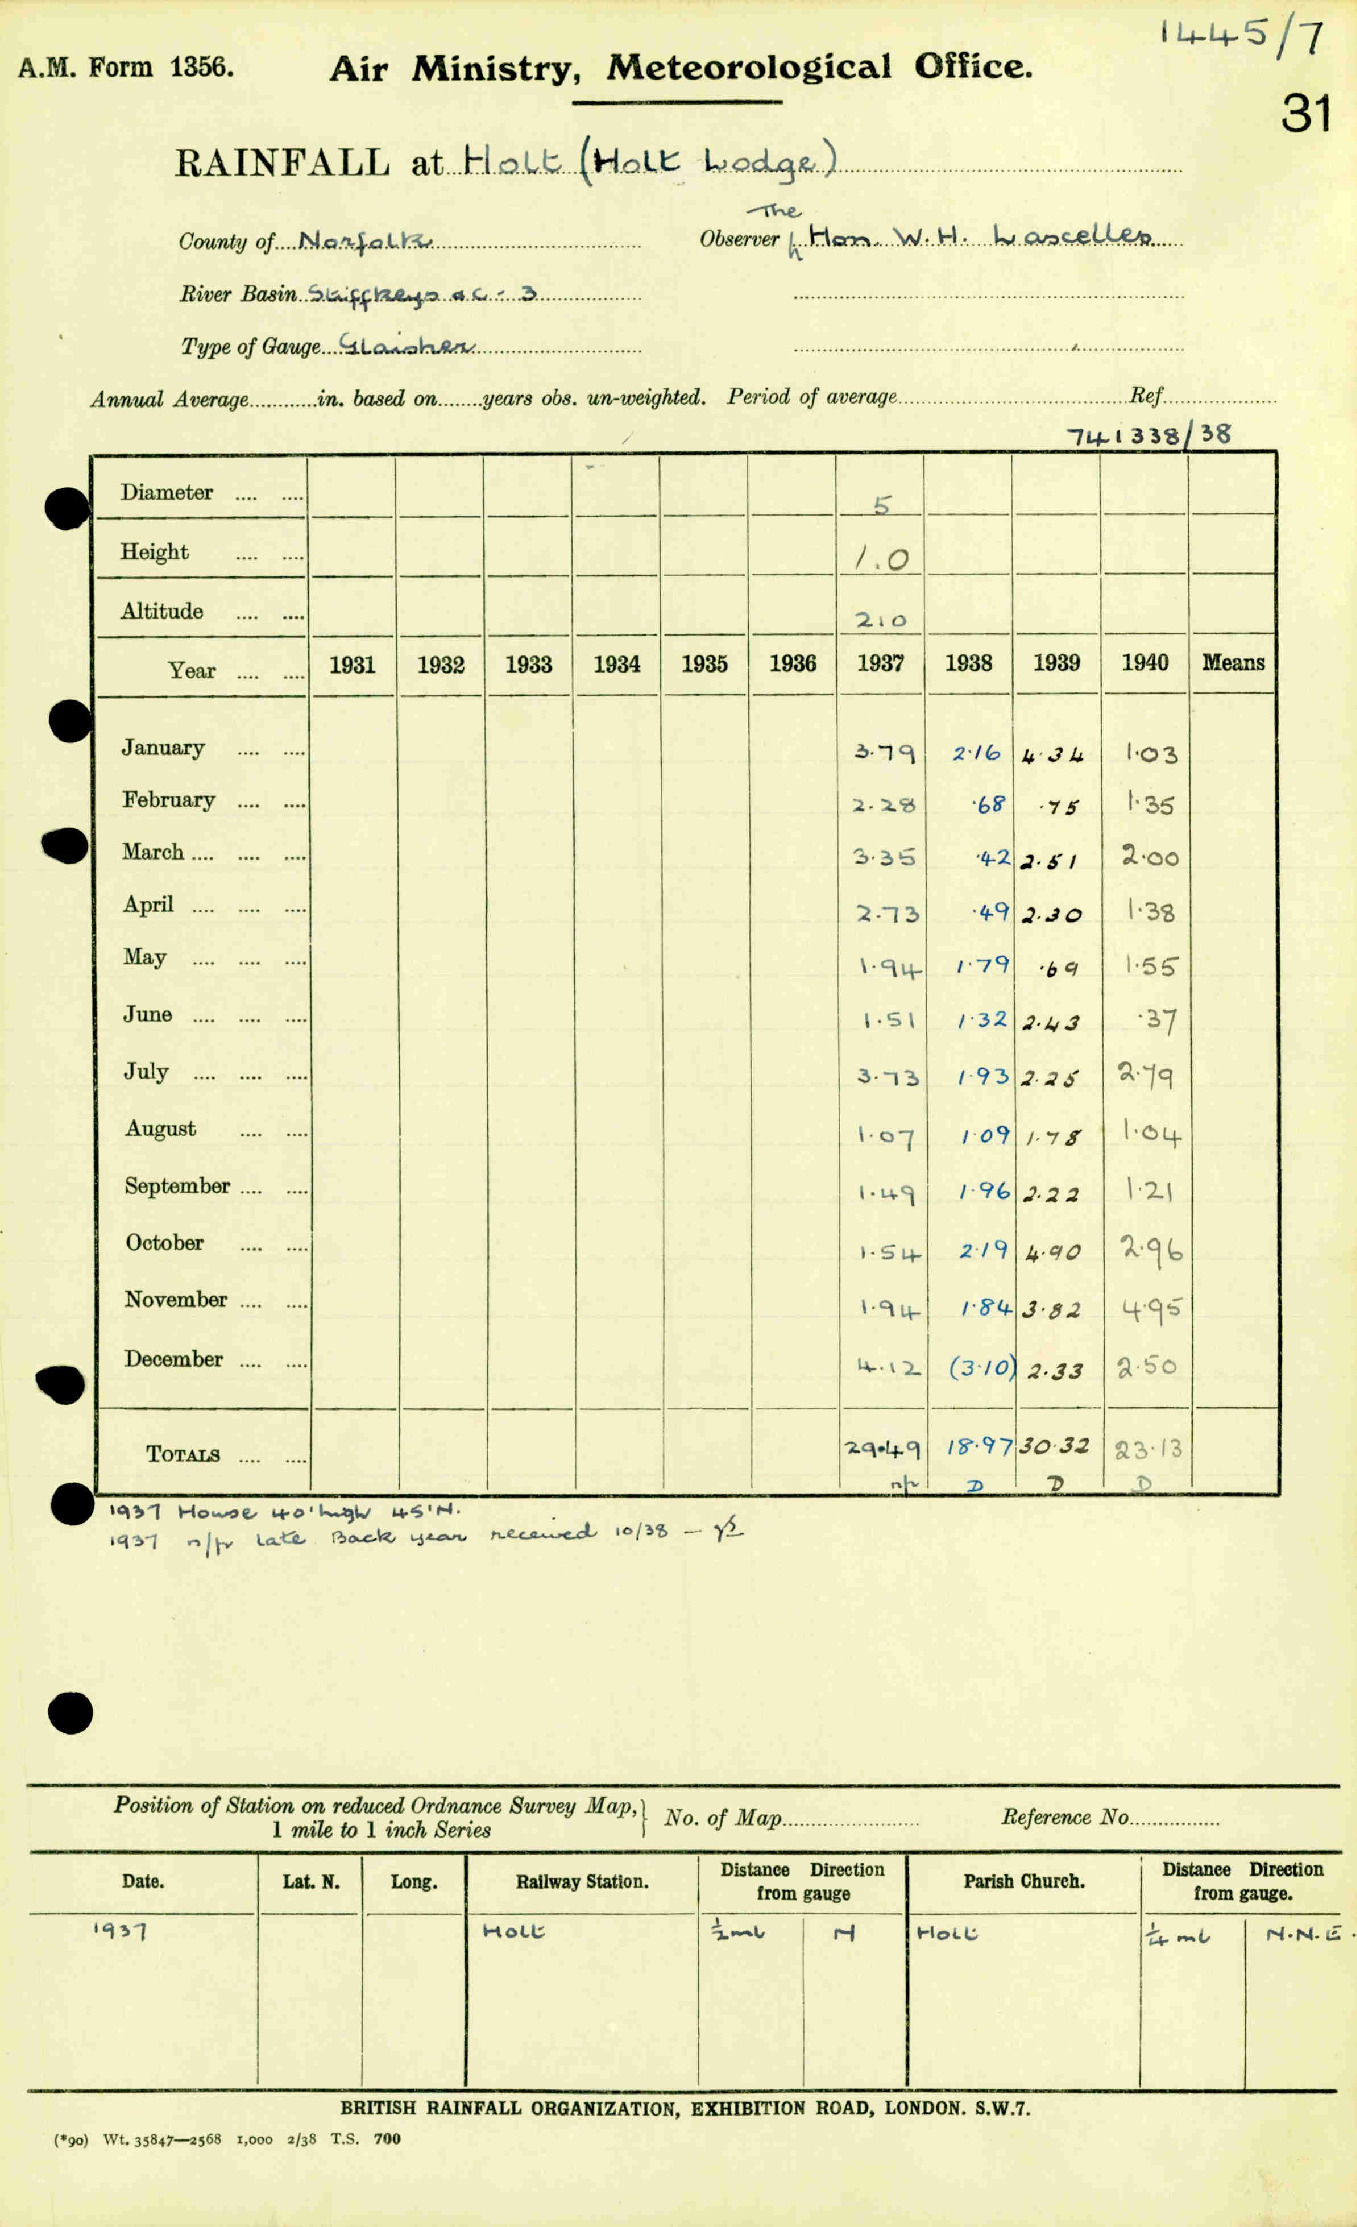 1445/7
A.M. Form 1356. Air Ministry, Meteorological Office.
31
RAINFALL at Holt (Holt Lodge)
The
County of Norfolk Observer Hon. W. H. Lascelles
River Basin Stiffkeys a c - 3
Type of Gauge Glaisher
Annual Average............in. based on........years obs. un-weighted. Period of average........Ref........
741338/38
Diameter .... .... 5
Height .... .... 1.0
Altitude .... .... 210
Year .... .... 1931 1932 1933 1934 1935 1936 1937 1938 1939 1940 Means
January .... .... 3.79 2.16 4.34 1.03
February .... .... 2.28 .68 .75 1.35
March .... .... .... 3.35 .42 2.51 2.00
April .... .... .... 2.73 .49 2.30 1.38
May .... .... .... 1.94 1.79 .69 1.55
June .... .... .... 1.51 1.32 2.43 .37
July .... .... .... 3.73 1.93 2.25 2.79
August .... .... 1.07 1.09 1.78 1.04
September .... .... 1.49 1.96 2.22 1.21
October .... .... 1.54 2.19 4.90 2.96
November .... .... 1.94 1.84 3.82 4.95
December .... .... 4.12 (3.10) 2.33 2.50
TOTALS .... .... 29.49 18.97 30.32 23.13
n/pr D D D
1937 House 40' high 45' N.
1937 n/pr late Back year received 10/38 —
Position of Station on reduced Ordnance Survey Map,} No. of Map........ Reference No........
1 mile to 1 inch Series
Date. Lat. N. Long. Railway Station. Distance Direction from gauge Parish Church. Distance Direction from gauge.
1937 Holt ½ ml N Holt ¼ ml N.N.E.
BRITISH RAINFALL ORGANIZATION, EXHIBITION ROAD, LONDON. S.W.7.
(*90) Wt. 35847—2568 1,000 2/38 T.S. 700